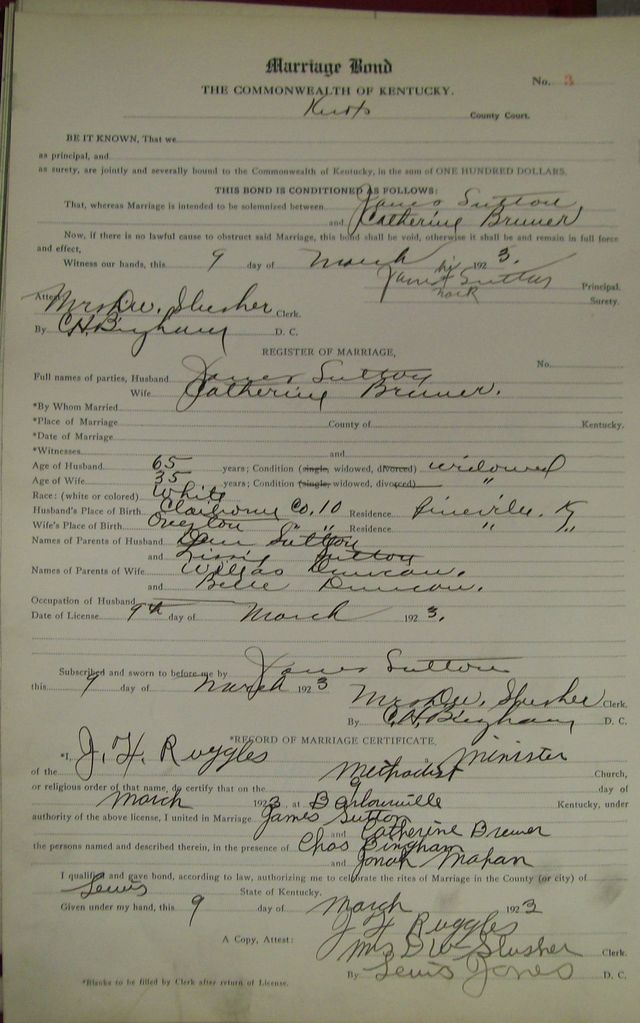 Marriage Bond
No. 3
THE COMMONWEALTH OF KENTUCKY.
Knox County Court.
BE IT KNOWN, That we
as principal, and
as surety, are jointly and severally bound to the Commonwealth of Kentucky, in the sum of ONE HUNDRED DOLLARS.
THIS BOND IS CONDITIONED AS FOLLOWS:
That, whereas Marriage is intended to be solemnized between James Sutton
and Catherine Bruner
Now, if there is no lawful cause to obstruct said Marriage, this bond shall be void, otherwise it shall be and remain in full force
and effect,
Witness our hands, this 9 day of March 1923.
James his Sutton Principal.
mark Surety.
Attest
Mrs D.W. Slusher Clerk.
By C.H. Bingham D. C.
REGISTER OF MARRIAGE,
No.
Full names of parties, Husband James Sutton
Wife Catherine Bruner.
*By Whom Married
*Place of Marriage County of Kentucky.
*Date of Marriage
*Witnesses and
Age of Husband 65 years; Condition (single, widowed, divorced) widowed
Age of Wife 35 years; Condition (single, widowed, divorced) "
Race: (white or colored) White
Husband's Place of Birth Claiborne Co. Residence Pineville, Ky
Wife's Place of Birth Overton " " Residence " "
Names of Parents of Husband Sutton
and Sutton
Names of Parents of Wife Duncan.
and Belle Duncan.
Occupation of Husband
Date of License 9th day of March 1923.
Subscribed and sworn to before me by James Sutton
this 9 day of March 1923
Mrs D.W. Slusher Clerk.
By C.H. Bingham D. C.
*RECORD OF MARRIAGE CERTIFICATE,
*I, J. H. Ruggles Minister
of the Methodist Church,
or religious order of that name, do certify that on the 9 day of
March 1923, at Barbourville Kentucky, under
authority of the above license, I united in Marriage James Sutton
and Catherine Brewer
the persons named and described therein, in the presence of Chas Bingham
and Jonah Mahan
I qualified and gave bond, according to law, authorizing me to celebrate the rites of Marriage in the County (or city) of
Lewis State of Kentucky.
Given under my hand, this 9 day of March 1923
J H Ruggles
A Copy, Attest: Mrs D W Slusher Clerk.
By Lewis Jones D. C.
*Blanks to be filled by Clerk after return of License.